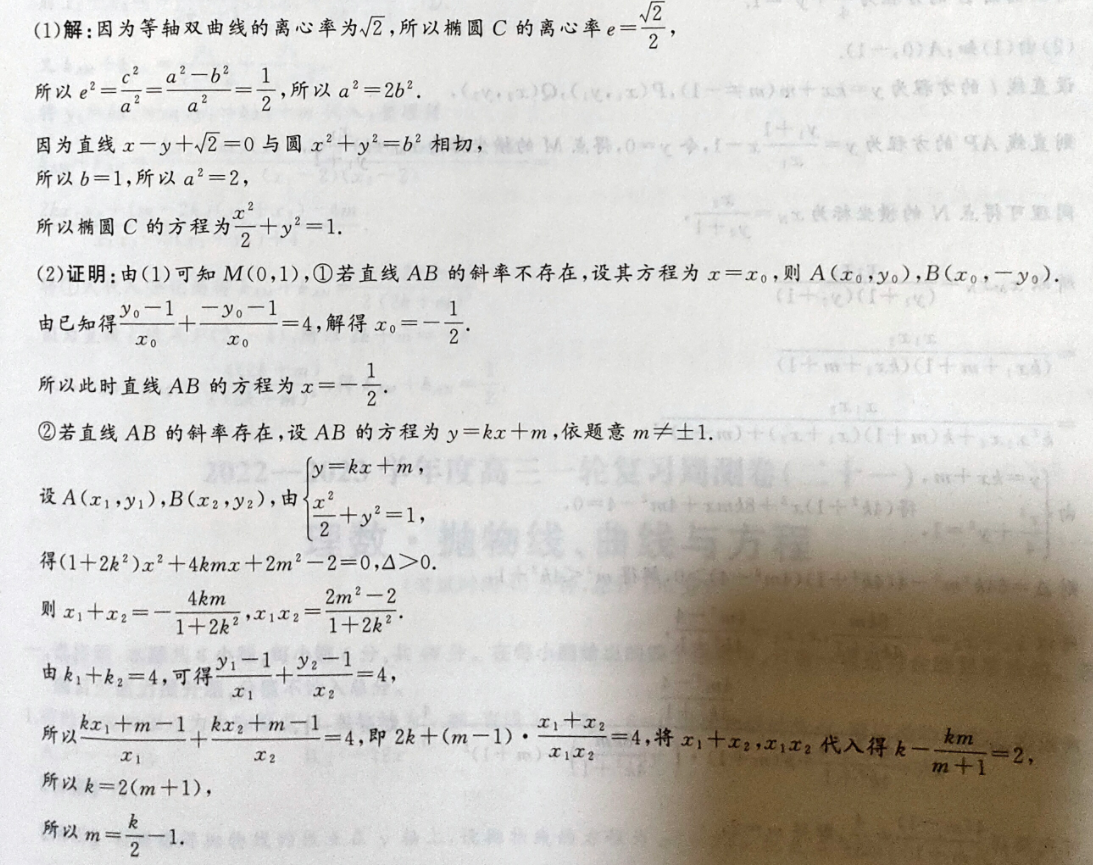 (1)解:因为等轴双曲线的离心率为√2,所以椭圆 C 的离心率 e=√2/2,
所以 e²=c²/a²=(a²-b²)/a²=1/2,所以 a²=2b².
因为直线 x-y+√2=0 与圆 x²+y²=b² 相切,
所以 b=1,所以 a²=2,
所以椭圆 C 的方程为x²/2+y²=1.
(2)证明:由(1)可知 M(0,1),①若直线 AB 的斜率不存在,设其方程为 x=x₀,则 A(x₀,y₀),B(x₀,-y₀),
由已知得(y₀-1)/x₀+(-y₀-1)/x₀=4,解得 x₀=-1/2.
所以此时直线 AB 的方程为 x=-1/2.
②若直线 AB 的斜率存在,设 AB 的方程为 y=kx+m,依题意 m≠±1.
设 A(x₁,y₁),B(x₂,y₂),由{y=kx+m, x²/2+y²=1,
得(1+2k²)x²+4kmx+2m²-2=0,Δ>0.
则 x₁+x₂=-4km/(1+2k²),x₁x₂=(2m²-2)/(1+2k²).
由 k₁+k₂=4,可得(y₁-1)/x₁+(y₂-1)/x₂=4,
所以(kx₁+m-1)/x₁+(kx₂+m-1)/x₂=4,即 2k+(m-1)·(x₁+x₂)/(x₁x₂)=4,将 x₁+x₂,x₁x₂ 代入得 k-km/(m+1)=2,
所以 k=2(m+1),
所以 m=k/2-1.